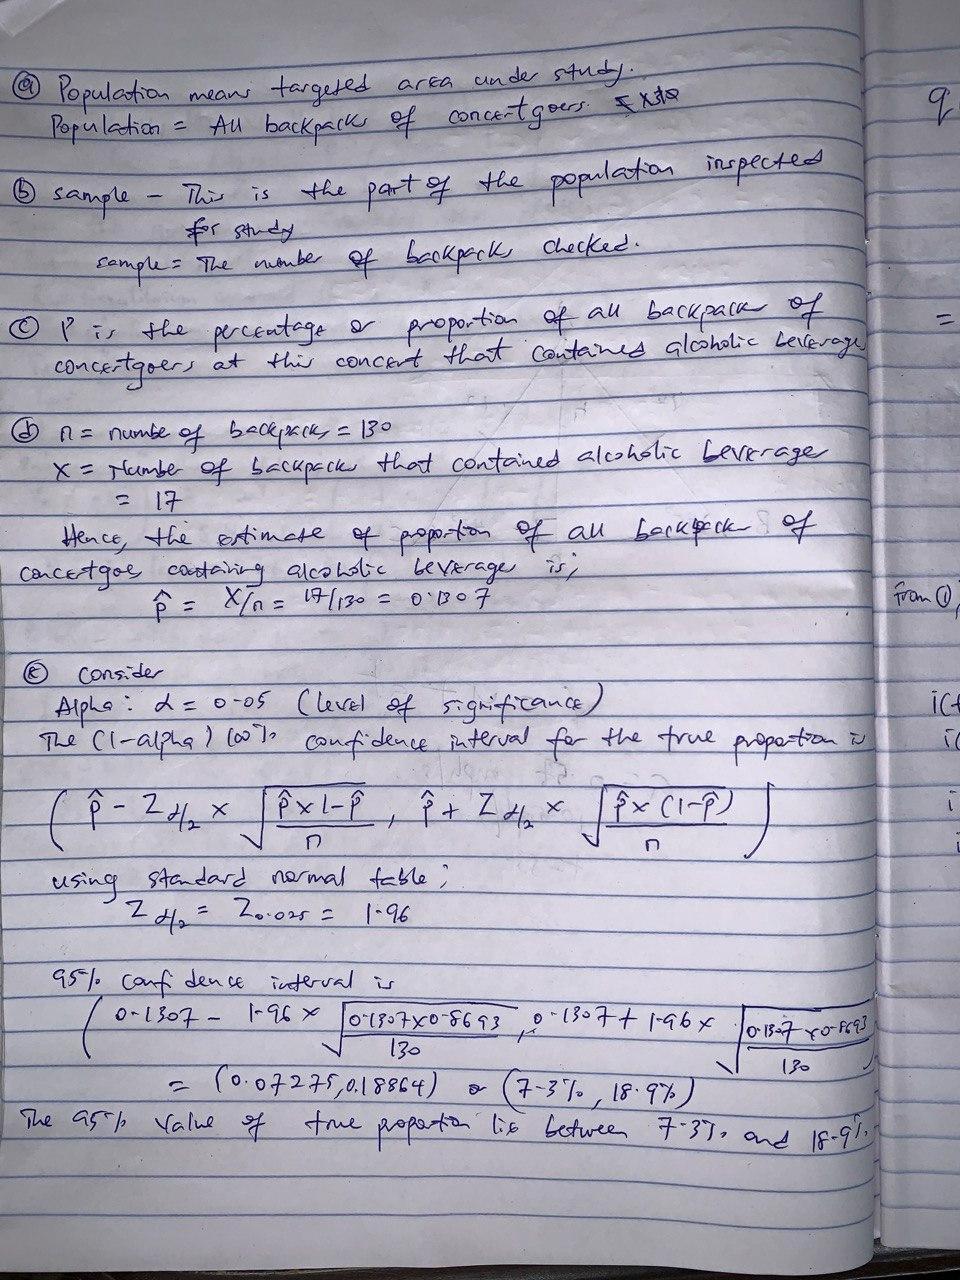 ⓐ Population means targeted area under study.
Population = All backpacks of concertgoers.
ⓑ sample - This is the part of the population inspected
for study
sample = The number of backpacks checked.
ⓒ P is the percentage or proportion of all backpacks of
concertgoers at this concert that contained alcoholic beverage
ⓓ n = number of backpacks = 130
X = Number of backpacks that contained alcoholic beverage
= 17
Hence, the estimate of propotion of all backpack of
concertgoes containing alcoholic beverage is;
p̂ = X/n = 17/130 = 0.1307
ⓔ consider
Alpha: α = 0.05 (level of significance)
The (1-alpha) 100% confidence interval for the true proportion is
( p̂ - Z α/2 × √(p̂ × 1-p̂ / n) , p̂ + Z α/2 × √(p̂ × (1-p̂) / n) )
using standard normal table;
Z α/2 = Z0.025 = 1.96
95% confidence interval is
( 0.1307 - 1.96 × √(0.1307×0.8693 / 130) , 0.1307 + 1.96 × √(0.1307×0.8693 / 130)
= (0.07275, 0.18864) or (7.3%, 18.9%)
The 95% value of true proportion lis between 7.3% and 18.9%.
q
=
from ①,